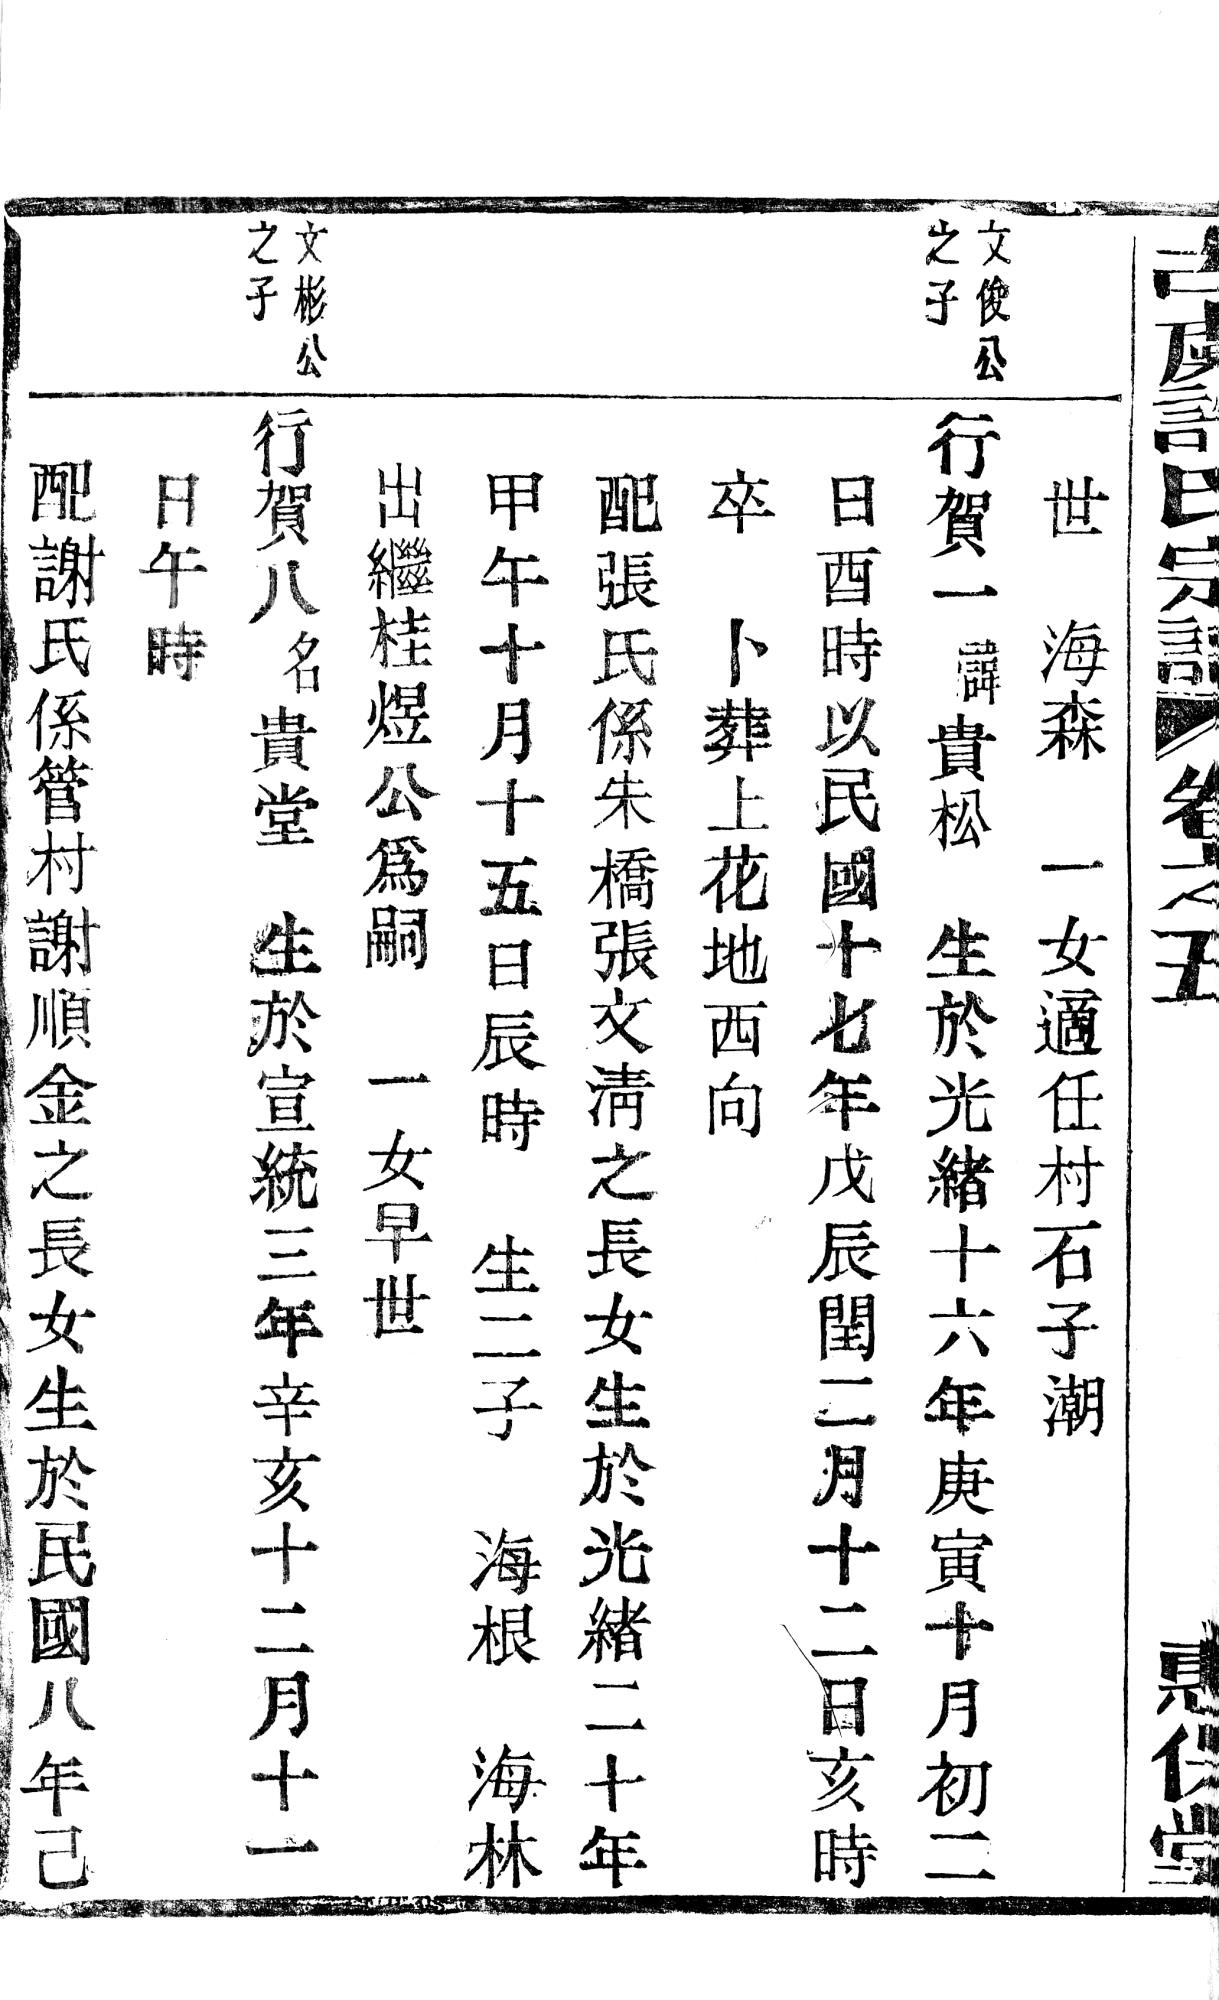 古虞許氏宗譜 卷之五 惠保堂
世 海森 一女適任村石子潮
文俊公
之子
行賀一諱貴松 生於光緒十六年庚寅十月初二
日酉時以民國十七年戊辰閏二月十二日亥時
卒 卜葬上花地西向
配張氏係朱橋張文淸之長女生於光緒二十年
甲午十月十五日辰時 生二子 海根 海林
出繼桂煜公爲嗣 一女早世
文彬公
之子
行賀八名貴堂 生於宣統三年辛亥十二月十一
日午時
配謝氏係管村謝順金之長女生於民國八年己